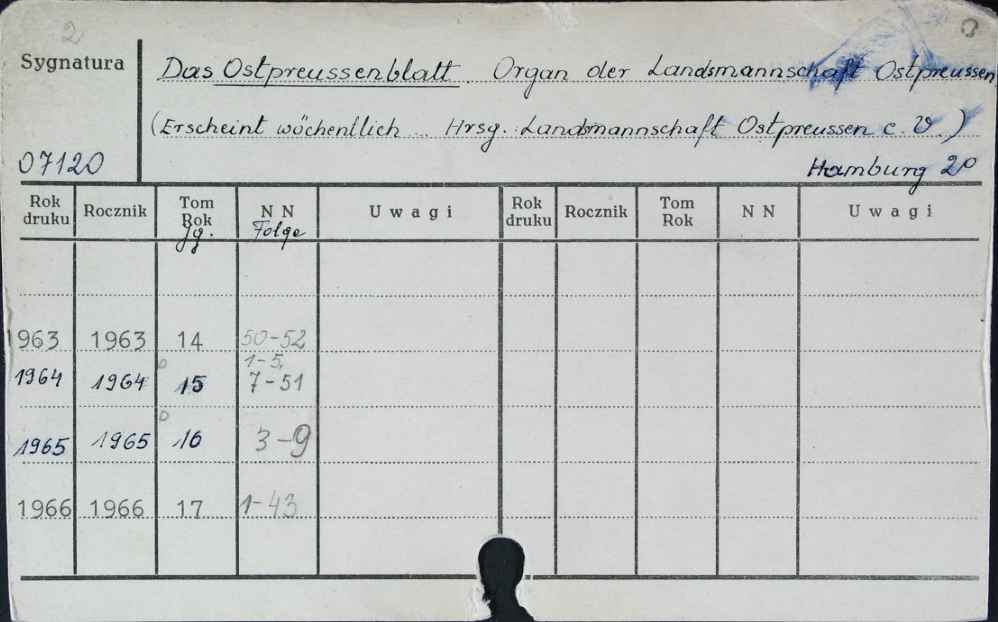 2
Sygnatura
Das Ostpreussenblatt. Organ der Landsmannschaft Ostpreussen
(Erscheint wöchentlich .. Hrsg. Landsmannschaft Ostpreussen e. V.)
07120 Hamburg 20
Rok druku Rocznik Tom Rok Jg. N N Folge Uwagi Rok druku Rocznik Tom Rok N N Uwagi
963 1963 14 50-52
1964 1964 15 1-5, 7-51
1965 1965 16 3-9
1966 1966 17 1-43